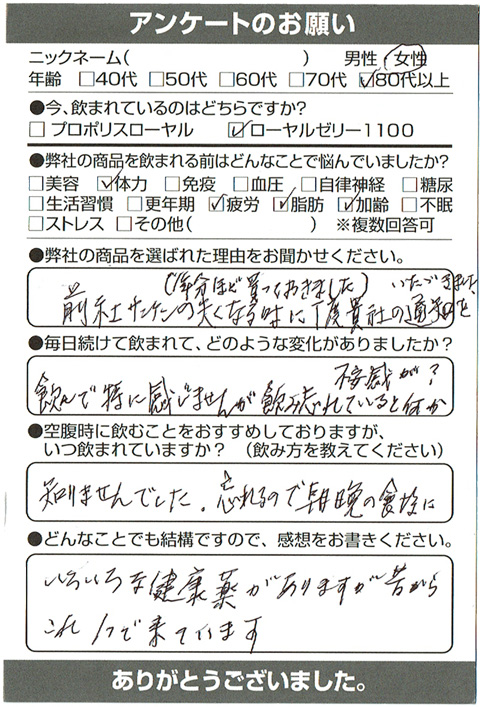 アンケートのお願い
ニックネーム( ) 男性・女性
年齢 □40代 □50代 □60代 □70代 ☑80代以上
●今、飲まれているのはどちらですか?
□ プロポリスローヤル ☑ローヤルゼリー1100
●弊社の商品を飲まれる前はどんなことで悩んでいましたか?
□美容 ☑体力 □免疫 □血圧 □自律神経 □糖尿
□生活習慣 □更年期 ☑疲労 ☑脂肪 ☑加齢 □不眠
□ストレス □その他( ) ※複数回答可
●弊社の商品を選ばれた理由をお聞かせください。
(1年分ほど買っておきました) いただきました
前社サンケンの失くなる時に1度貴社の通知を
●毎日続けて飲まれて、どのような変化がありましたか?
不安感が?
飲んで特に感じませんが飲み忘れていると何か
●空腹時に飲むことをおすすめしておりますが、
いつ飲まれていますか? (飲み方を教えてください)
知りませんでした。忘れるので朝晩の食後に
●どんなことでも結構ですので、感想をお書きください。
いろいろな健康薬がありますが昔から
これ1つで来ています
ありがとうございました。